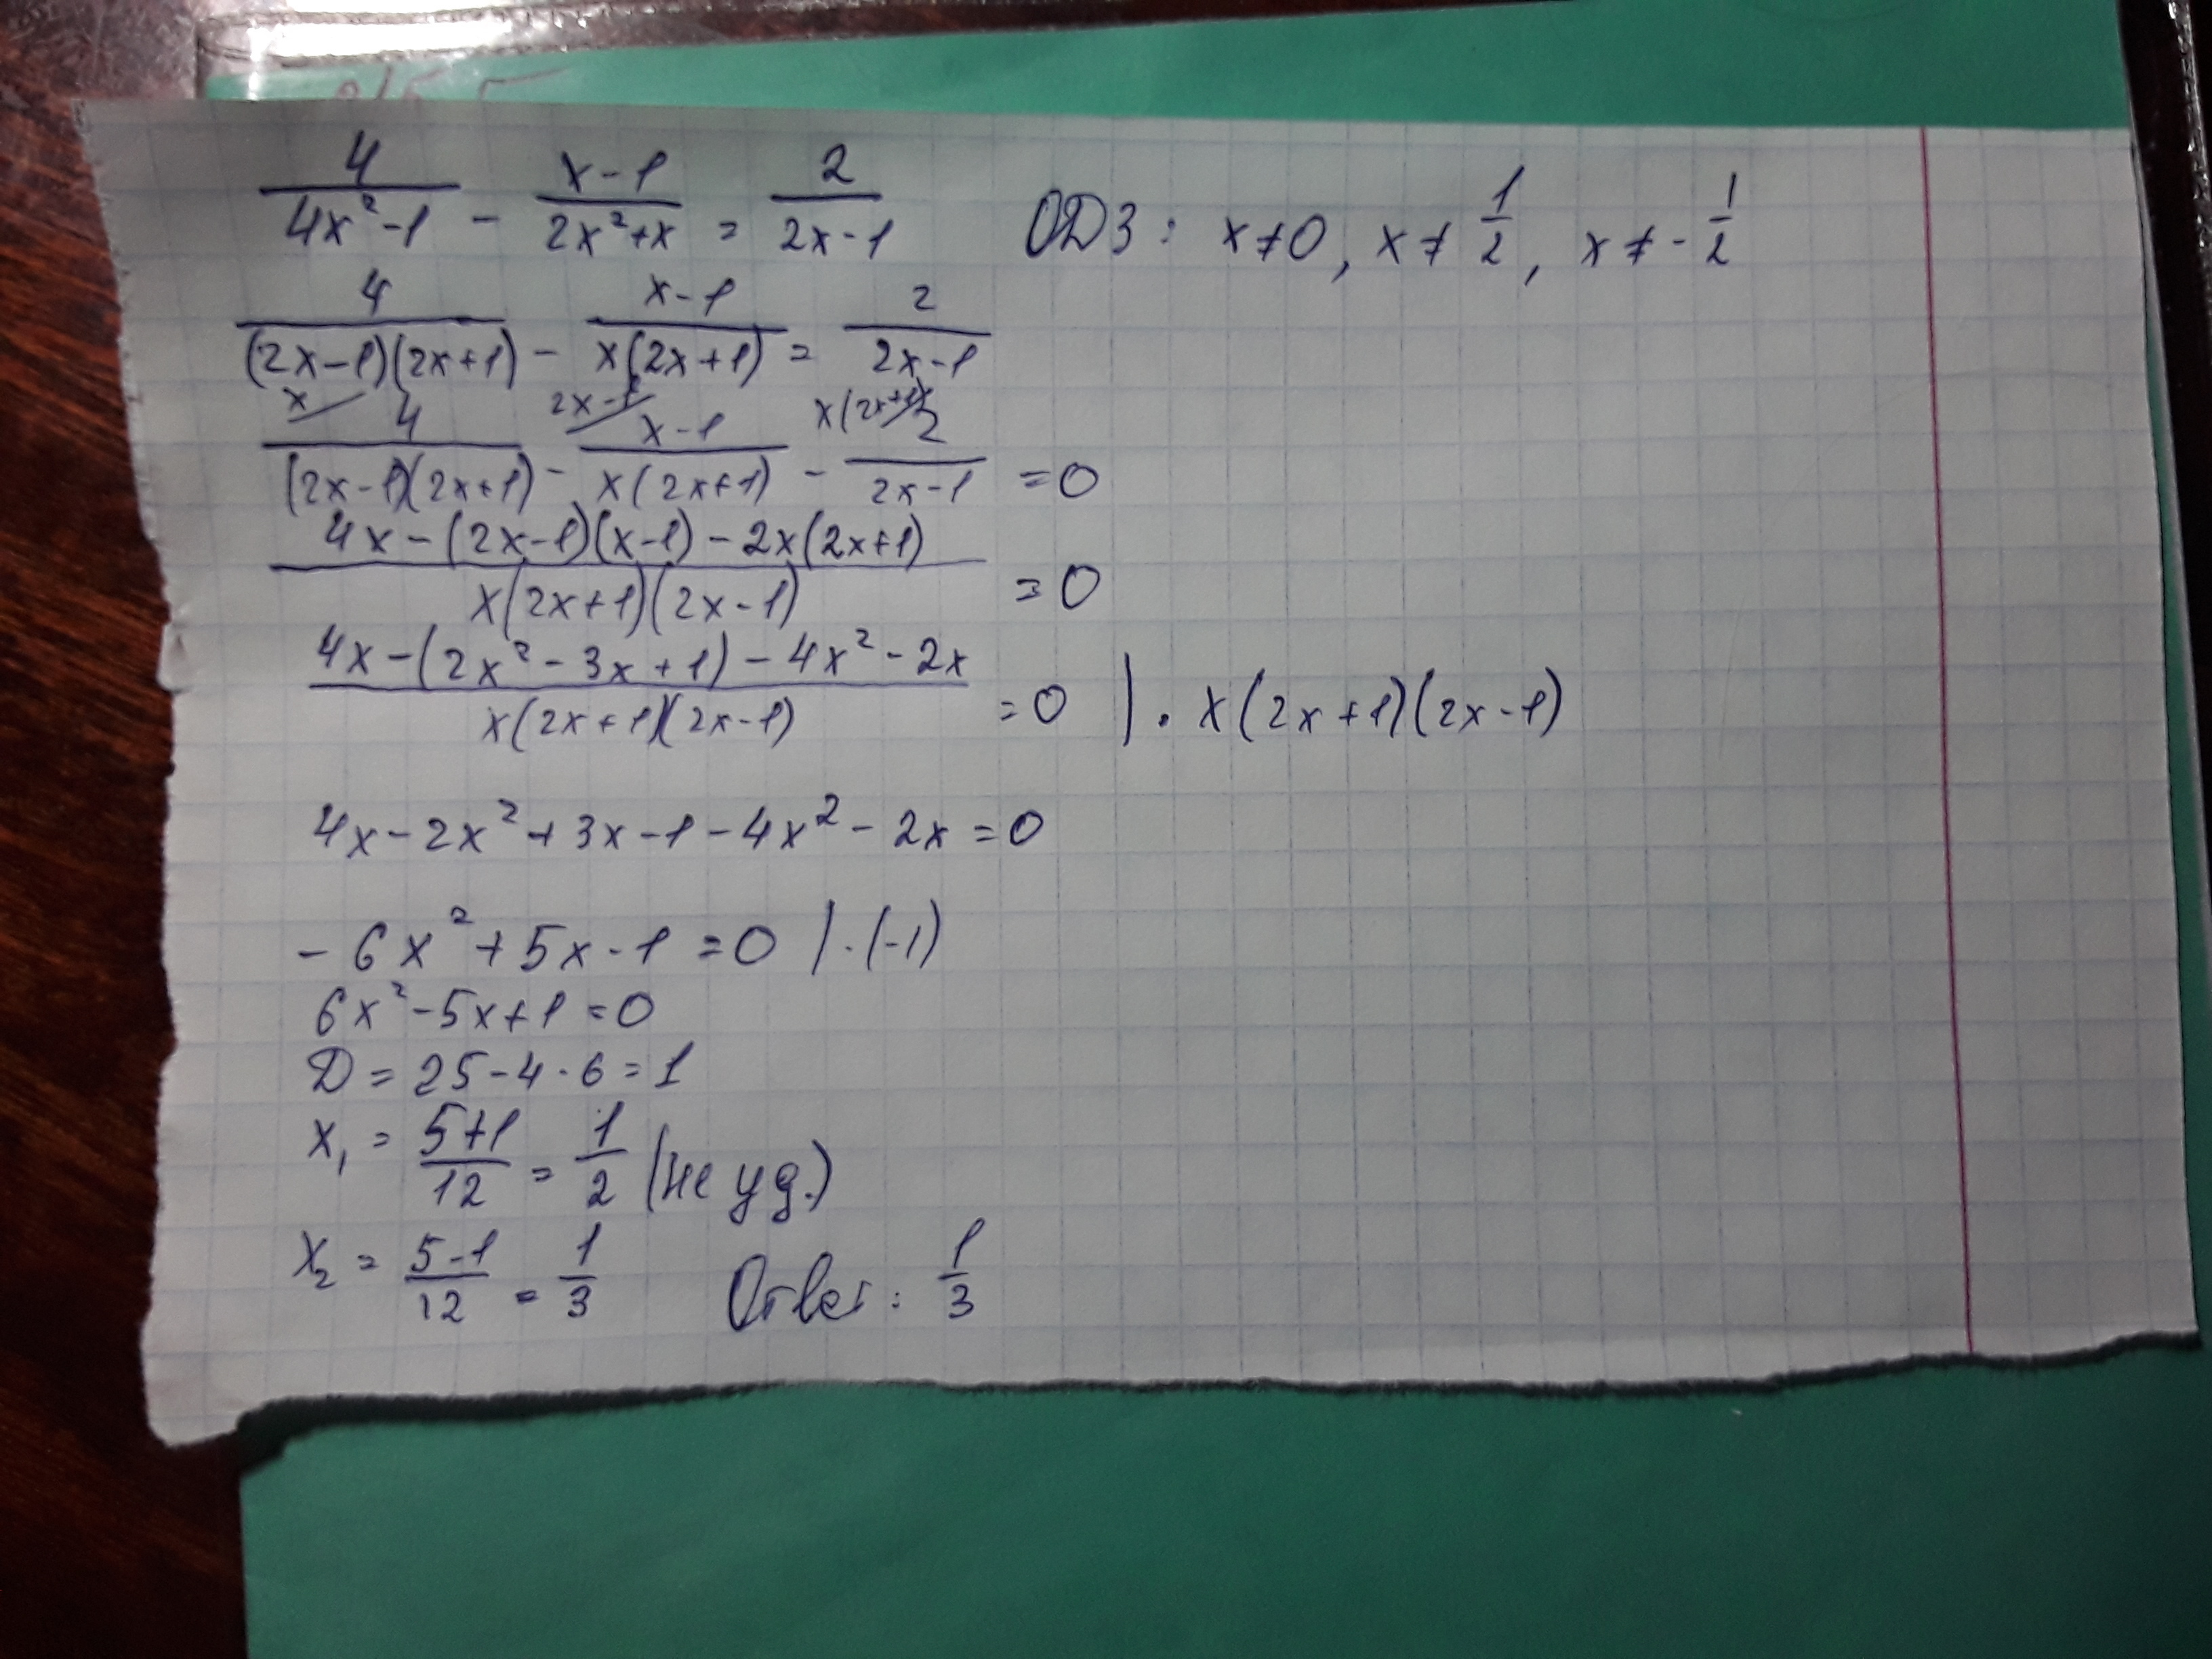 4/(4x²-1) - (x-1)/(2x²+x) = 2/(2x-1) ОДЗ: x≠0, x≠1/2, x≠-1/2
4/((2x-1)(2x+1)) - (x-1)/(x(2x+1)) = 2/(2x-1)
x 2x-1 x(2x+1)
4/((2x-1)(2x+1)) - (x-1)/(x(2x+1)) - 2/(2x-1) = 0
(4x-(2x-1)(x-1)-2x(2x+1))/(x(2x+1)(2x-1)) = 0
(4x-(2x²-3x+1)-4x²-2x)/(x(2x+1)(2x-1)) = 0 | · x(2x+1)(2x-1)
4x-2x²+3x-1-4x²-2x=0
-6x²+5x-1=0 |·(-1)
6x²-5x+1=0
D=25-4·6=1
x₁ = (5+1)/12 = 1/2 (не уд.)
x₂ = (5-1)/12 = 1/3 Ответ: 1/3